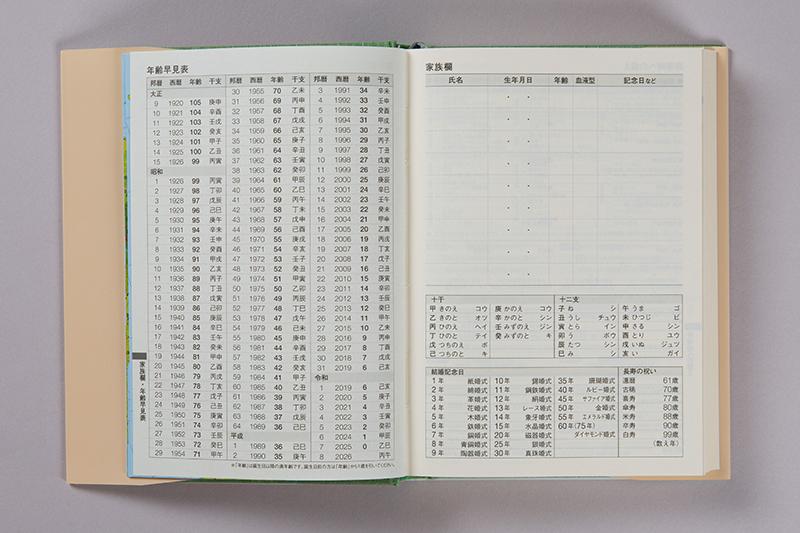 年齢早見表
邦暦 西暦 年齢 干支
大正
9 1920 105 庚申
10 1921 104 辛酉
11 1922 103 壬戌
12 1923 102 癸亥
13 1924 101 甲子
14 1925 100 乙丑
15 1926 99 丙寅
昭和
1 1926 99 丙寅
2 1927 98 丁卯
3 1928 97 戊辰
4 1929 96 己巳
5 1930 95 庚午
6 1931 94 辛未
7 1932 93 壬申
8 1933 92 癸酉
9 1934 91 甲戌
10 1935 90 乙亥
11 1936 89 丙子
12 1937 88 丁丑
13 1938 87 戊寅
14 1939 86 己卯
15 1940 85 庚辰
16 1941 84 辛巳
17 1942 83 壬午
18 1943 82 癸未
19 1944 81 甲申
20 1945 80 乙酉
21 1946 79 丙戌
22 1947 78 丁亥
23 1948 77 戊子
24 1949 76 己丑
25 1950 75 庚寅
26 1951 74 辛卯
27 1952 73 壬辰
28 1953 72 癸巳
29 1954 71 甲午
邦暦 西暦 年齢 干支
30 1955 70 乙未
31 1956 69 丙申
32 1957 68 丁酉
33 1958 67 戊戌
34 1959 66 己亥
35 1960 65 庚子
36 1961 64 辛丑
37 1962 63 壬寅
38 1963 62 癸卯
39 1964 61 甲辰
40 1965 60 乙巳
41 1966 59 丙午
42 1967 58 丁未
43 1968 57 戊申
44 1969 56 己酉
45 1970 55 庚戌
46 1971 54 辛亥
47 1972 53 壬子
48 1973 52 癸丑
49 1974 51 甲寅
50 1975 50 乙卯
51 1976 49 丙辰
52 1977 48 丁巳
53 1978 47 戊午
54 1979 46 己未
55 1980 45 庚申
56 1981 44 辛酉
57 1982 43 壬戌
58 1983 42 癸亥
59 1984 41 甲子
60 1985 40 乙丑
61 1986 39 丙寅
62 1987 38 丁卯
63 1988 37 戊辰
64 1989 36 己巳
平成
1 1989 36 己巳
2 1990 35 庚午
邦暦 西暦 年齢 干支
3 1991 34 辛未
4 1992 33 壬申
5 1993 32 癸酉
6 1994 31 甲戌
7 1995 30 乙亥
8 1996 29 丙子
9 1997 28 丁丑
10 1998 27 戊寅
11 1999 26 己卯
12 2000 25 庚辰
13 2001 24 辛巳
14 2002 23 壬午
15 2003 22 癸未
16 2004 21 甲申
17 2005 20 乙酉
18 2006 19 丙戌
19 2007 18 丁亥
20 2008 17 戊子
21 2009 16 己丑
22 2010 15 庚寅
23 2011 14 辛卯
24 2012 13 壬辰
25 2013 12 癸巳
26 2014 11 甲午
27 2015 10 乙未
28 2016 9 丙申
29 2017 8 丁酉
30 2018 7 戊戌
31 2019 6 己亥
令和
1 2019 6 己亥
2 2020 5 庚子
3 2021 4 辛丑
4 2022 3 壬寅
5 2023 2 癸卯
6 2024 1 甲辰
7 2025 0 乙巳
8 2026 丙午
※「年齢」は誕生日以降の満年齢です。誕生日前の方は「年齢」から1歳を引いてください。
家族欄・年齢早見表
家族欄
氏名 生年月日 年齢 血液型 記念日など
十干
甲 きのえ コウ
乙 きのと オツ
丙 ひのえ ヘイ
丁 ひのと テイ
戊 つちのえ ボ
己 つちのと キ
庚 かのえ コウ
辛 かのと シン
壬 みずのえ ジン
癸 みずのと キ
十二支
子 ね シ
丑 うし チュウ
寅 とら イン
卯 う ボウ
辰 たつ シン
巳 み シ
午 うま ゴ
未 ひつじ ビ
申 さる シン
酉 とり ユウ
戌 いぬ ジュツ
亥 い ガイ
結婚記念日
1年 紙婚式
2年 綿婚式
3年 革婚式
4年 花婚式
5年 木婚式
6年 鉄婚式
7年 銅婚式
8年 青銅婚式
9年 陶器婚式
10年 錫婚式
11年 鋼鉄婚式
12年 絹婚式
13年 レース婚式
14年 象牙婚式
15年 水晶婚式
20年 磁器婚式
25年 銀婚式
30年 真珠婚式
35年 珊瑚婚式
40年 ルビー婚式
45年 サファイア婚式
50年 金婚式
55年 エメラルド婚式
60年(75年)
ダイヤモンド婚式
長寿の祝い
還暦 61歳
古稀 70歳
喜寿 77歳
傘寿 80歳
米寿 88歳
卒寿 90歳
白寿 99歳
(数え年)